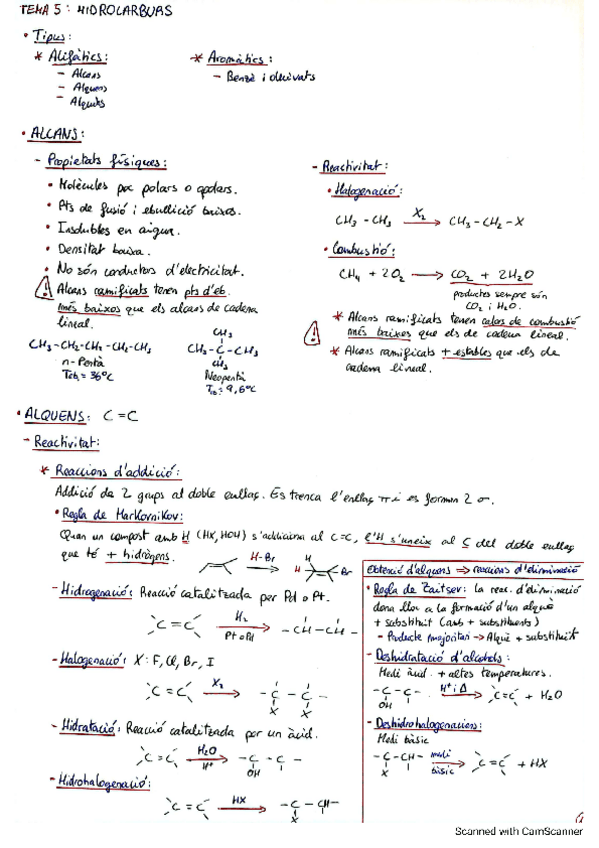 TEMA 5: HIDROCARBURS
• Tipus:
* Alifàtics:
- Alcans
- Alquens
- Alquins
* Aromàtics:
- Benzè i derivats
• ALCANS:
- Propietats físiques:
• Molècules poc polars o apolars.
• Pts de fusió i ebullició baixos.
• Insolubles en aigua.
• Densitat baixa.
• No són conductors d'electricitat.
⚠ Alcans ramificats tenen pts d'eb.
més baixos que els alcans de cadena
lineal.
CH₃-CH₂-CH₂-CH₂-CH₃
n-Pentà
Teb = 36°C
CH₃
CH₃-C-CH₃
CH₃
Neopentà
Teb = 9,6°C
- Reactivitat:
• Halogenació:
CH₃-CH₃ X₂→ CH₃-CH₂-X
• Combustió:
CH₄ + 2O₂ → CO₂ + 2H₂O
productes sempre són
CO₂ i H₂O.
⚠ * Alcans ramificats tenen calors de combustió
més baixos que els de cadena lineal.
* Alcans ramificats + estables que els de
cadena lineal.
• ALQUENS: C=C
- Reactivitat:
* Reaccions d'addició:
Addició de 2 grups al doble enllaç. Es trenca l'enllaç π i es formen 2 σ.
• Regla de Markovnikov:
Quan un compost amb H (HX, HOH) s'addiciona al C=C, l'H s'uneix al C del doble enllaç
que té + hidrògens.
H-Br → H H Br
- Hidrogenació: Reacció catalitzada per Pd o Pt.
C=C H₂ Pt o Pd → -CH-CH-
- Halogenació: X: F, Cl, Br, I
C=C X₂→ -C-C-
X X
- Hidratació: Reacció catalitzada per un àcid.
C=C H₂O H⁺ → -C-C-
OH
- Hidrohalogenació:
C=C HX→ -C-CH-
X
Obtenció d'alquens ⇒ reaccions d'eliminació
• Regla de Zaitsev: la reac. d'eliminació
dona lloc a la formació d'un alquè
+ substituït (amb + substituents)
- Producte majoritari → Alquè + substituït
- Deshidratació d'alcohols:
Medi àcid. + altes temperatures.
-C-C- H⁺ i Δ → C=C + H₂O
OH
- Deshidrohalogenacions:
Medi bàsic
-C-CH- medi bàsic → C=C + HX
X
Scanned with CamScanner